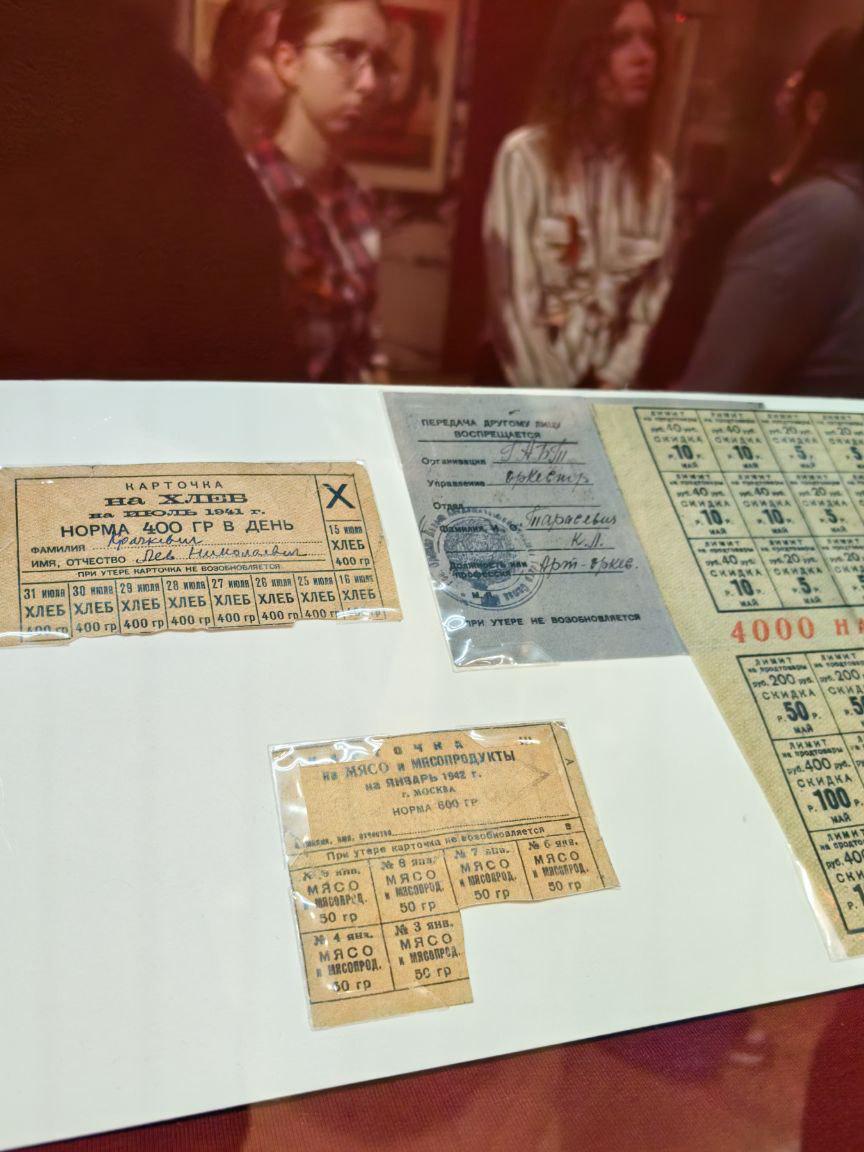 КАРТОЧКА
на ХЛЕБ
на ИЮЛЬ 1941 г.
НОРМА 400 ГР В ДЕНЬ
ФАМИЛИЯ Крачкевич
ИМЯ, ОТЧЕСТВО Лев Николаевич
ПРИ УТЕРЕ КАРТОЧКА НЕ ВОЗОБНОВЛЯЕТСЯ
Х
15 июля
ХЛЕБ
400 гр
31 июля 30 июля 29 июля 28 июля 27 июля 26 июля 25 июля 16 июля
ХЛЕБ ХЛЕБ ХЛЕБ ХЛЕБ ХЛЕБ ХЛЕБ ХЛЕБ ХЛЕБ
400 гр 400 гр 400 гр 400 гр 400 гр 400 гр 400 гр 400 гр
ПЕРЕДАЧА ДРУГОМУ ЛИЦУ
ВОСПРЕЩАЕТСЯ
Организация ГАБТ
Управление оркестр
Отдел
Фамилия, И., О. Тарасевич
К.Л.
Должность или Арт-оркес.
профессия
ПРИ УТЕРЕ НЕ ВОЗОБНОВЛЯЕТСЯ
ЛИМИТ ЛИМИТ ЛИМИТ ЛИМИТ
на продтовары на продтовары на продтовары
руб. 40 руб. руб. 40 руб. руб. 20 руб. руб. 20
СКИДКА СКИДКА СКИДКА СКИДКА
р. 10 р. р. 10 р. р. 5 р. р. 5
МАЙ МАЙ МАЙ
ЛИМИТ ЛИМИТ ЛИМИТ ЛИМИТ
на продтовары на продтовары на продтовары
руб. 40 руб. руб. 40 руб. руб. 20 руб. руб. 20
СКИДКА СКИДКА СКИДКА
р. 10 р. р. 10 р. р. 5 р.
МАЙ МАЙ МАЙ
ЛИМИТ ЛИМИТ ЛИМИТ
на продтовары на продтовары на продтовары
руб. 40 руб. руб. 20 руб. руб. 20 руб.
СКИДКА СКИДКА СКИДКА
р. 10 р. р. 5 р. р. 5 р.
МАЙ МАЙ МАЙ
4000 НА
ЛИМИТ ЛИМИТ
на продтовары на продтовары
руб. 200 руб. руб. 200
СКИДКА СКИДКА
р. 50 р.
МАЙ
ЛИМИТ ЛИМИТ
на продтовары
руб. 400 руб. руб. 400
СКИДКА
р. 100 р.
МАЙ
ЛИМИТ
на продтовары
руб. 400
на МЯСО и МЯСОПРОДУКТЫ
на ЯНВАРЬ 1942 г.
г. МОСКВА
НОРМА 600 ГР
При утере карточка не возобновляется
№ 9 янв. № 8 янв. № 7 янв. № 6 янв.
МЯСО МЯСО МЯСО МЯСО
и МЯСОПРОД. и МЯСОПРОД. и МЯСОПРОД. и МЯСОПРОД.
50 гр 50 гр 50 гр 50 гр
№ 4 янв. № 3 янв.
МЯСО МЯСО
и МЯСОПРОД. и МЯСОПРОД.
50 гр 50 гр